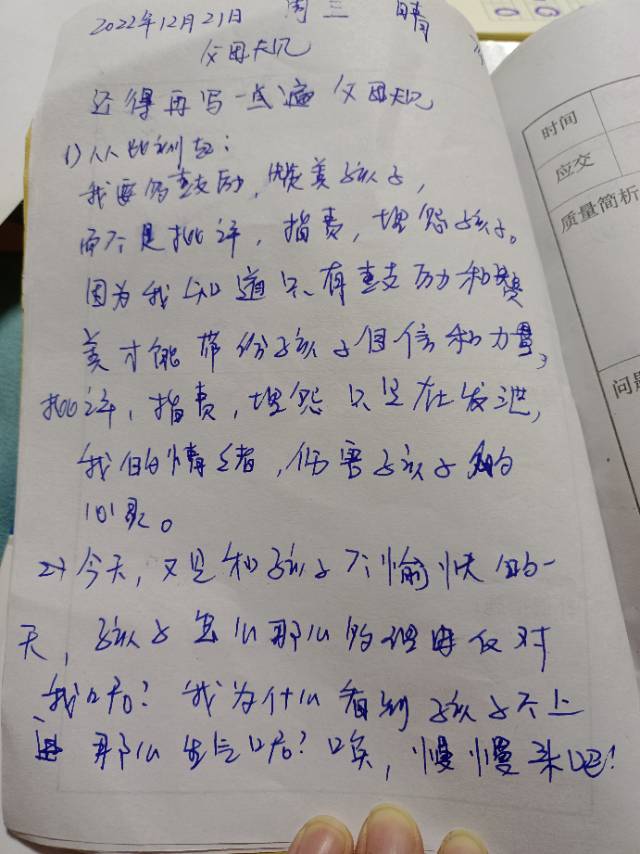 2022年12月21日 周三 晴
父母天记
还得再写一点遍父母天记
1)从此刻起:
我要的鼓励,赞美孩子,
而不是批评,指责,埋怨孩子。
因为我知道只有鼓励和赞
美才能带给孩子自信和力量,
批评,指责,埋怨只是在发泄,
我的情绪,伤害孩子的
心灵。
2)今天,又是和孩子不愉快的一
天,孩子怎么那么的理由反对
我呢?我为什么看到孩子不上
进那么生气呢?唉,慢慢来吧!
时间
应交
质量简析
问题